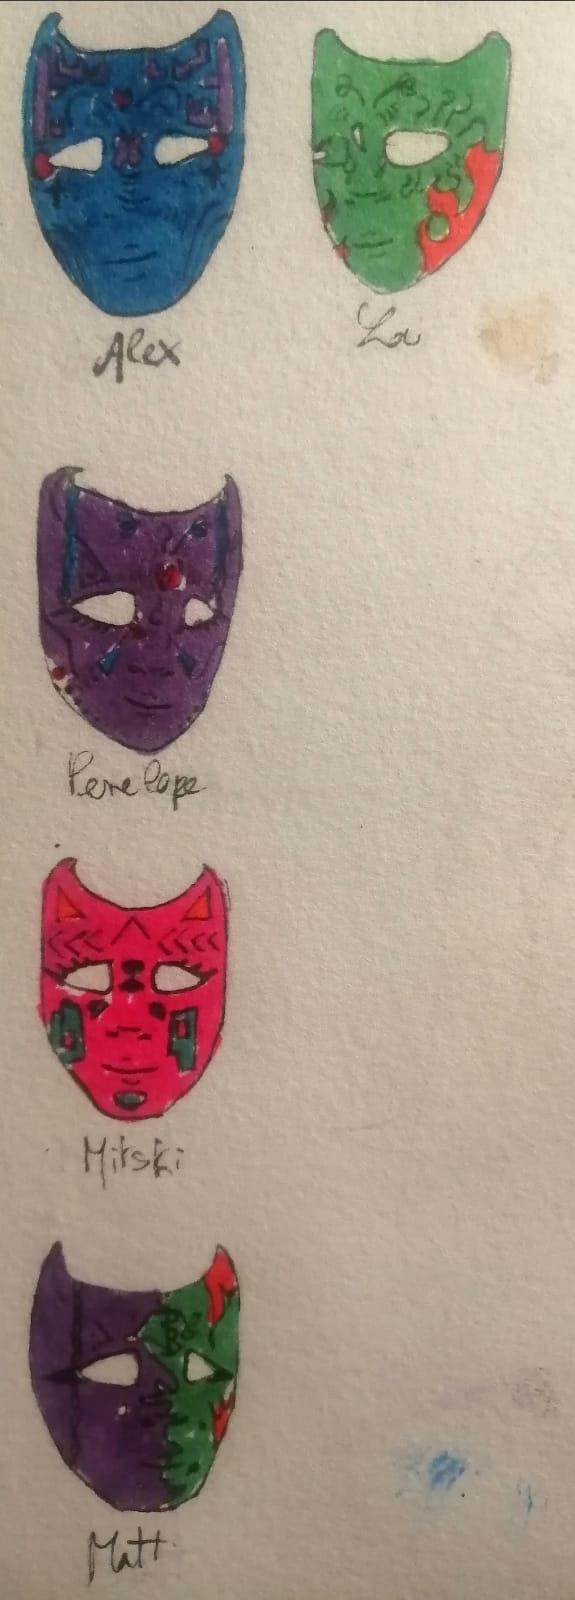 Alex
La
Penelope
Mitski
Matt